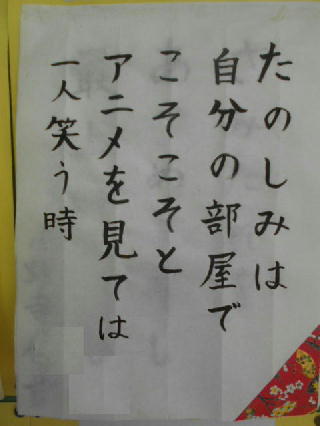 たのしみは
自分の部屋で
こそこそと
アニメを見ては
一人笑う時